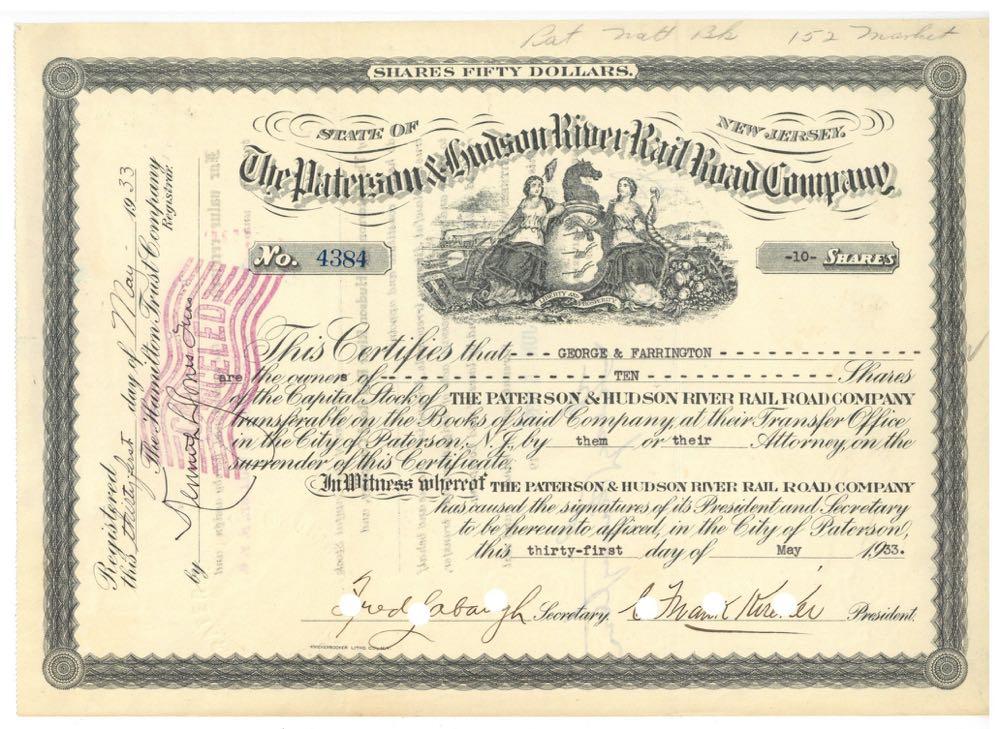 Pat Natl Bk 152 Market
SHARES FIFTY DOLLARS.
STATE OF NEW JERSEY.
The Paterson & Hudson River Rail Road Company
No. 4384
-10- SHARES
LIBERTY AND PROSPERITY
This Certifies that GEORGE & FARRINGTON
are the owners of TEN Shares
of the Capital Stock of THE PATERSON & HUDSON RIVER RAIL ROAD COMPANY
transferable on the Books of said Company, at their Transfer Office
in the City of Paterson, N.J. by them or their Attorney, on the
surrender of this Certificate.
In Witness whereof THE PATERSON & HUDSON RIVER RAIL ROAD COMPANY
has caused the signatures of its President and Secretary
to be hereunto affixed, in the City of Paterson,
this thirty-first day of May 1933.
Fred Labaugh Secretary. President.
KNICKERBOCKER LITHO CO. N.Y.
Registered
this thirty first day of May 1933
The Hamilton Trust Company
Registrar
by
CANCELED